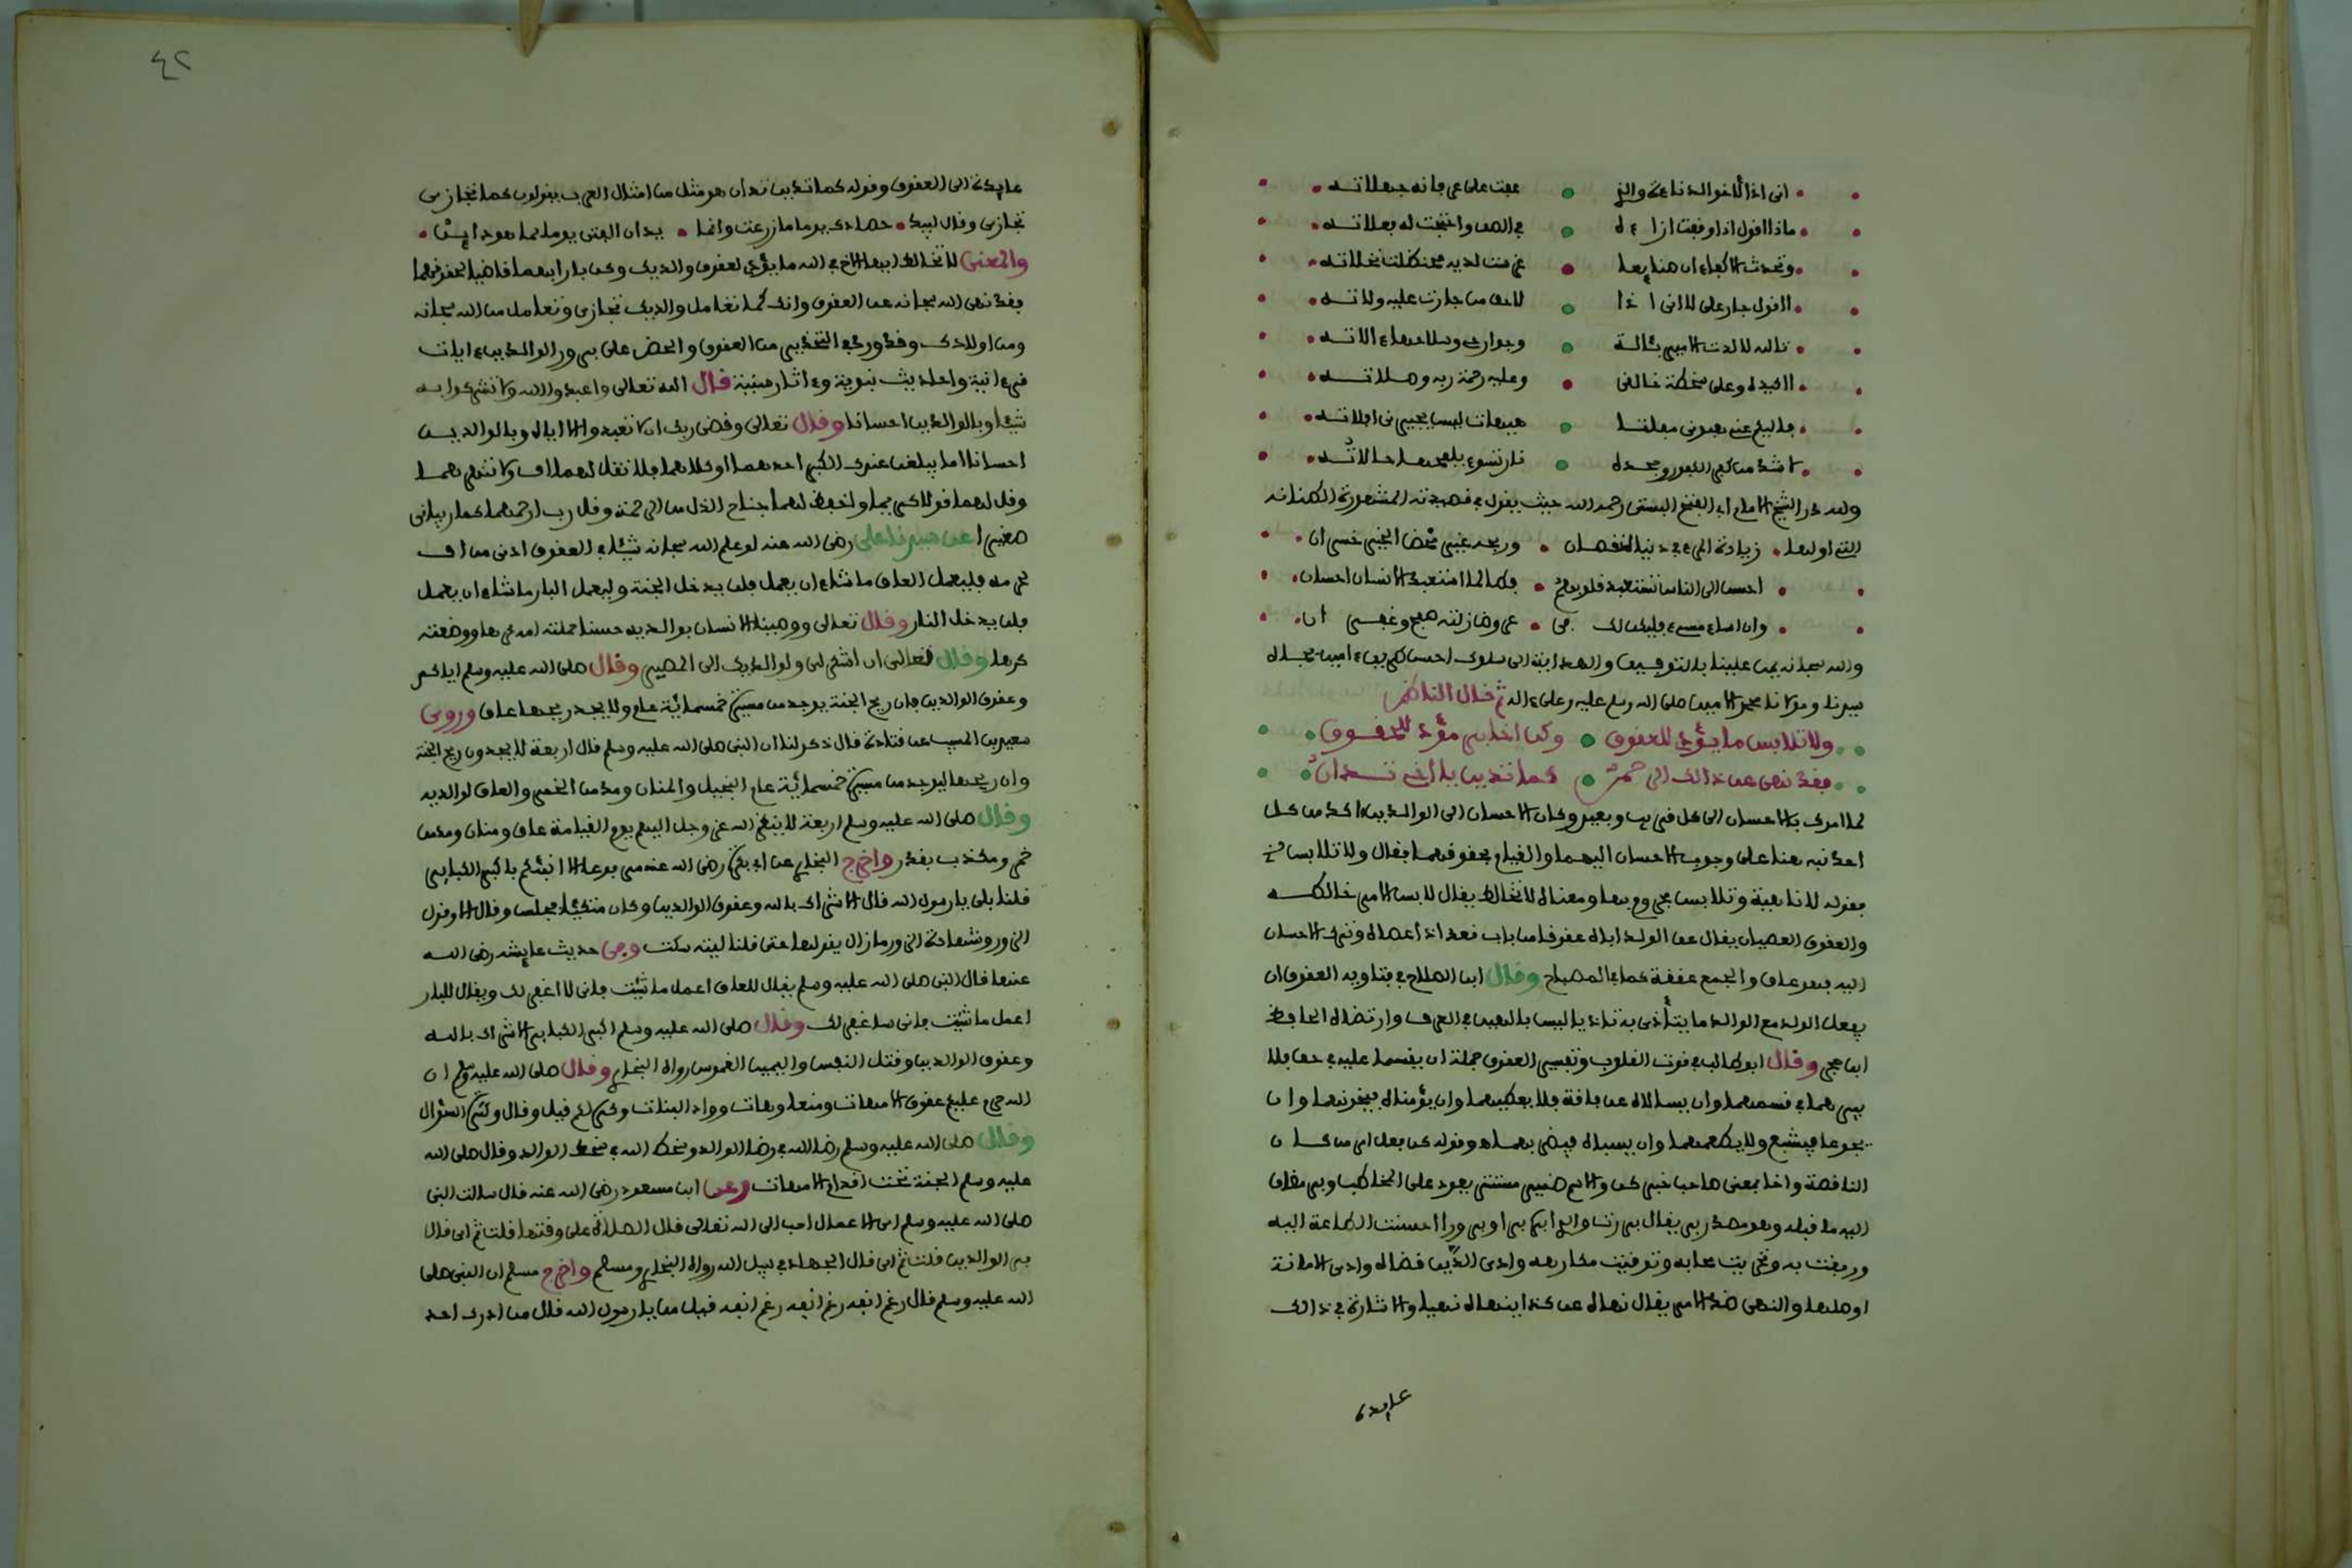 اني اذا
ماذا اقول اذا وقفت ازاءه
اأقول جار علي لا اني اذا
تالله لا كدت الامير بئالة
ولله در الشيخ الامام ابي الفتح البستي رحمه الله حيث يقول في قصيدته المشهورة الطنانه
التي اولها • زيادة المرء في دنياه نقصان • وربحه غير محض الخير خسران •
• احسن الى الناس تستعبد قلوبهم • فطالما استعبد الانسان احسان •
• وان اساء مسيء فليكن لك في • عروض زلته صفح وغفران •
والله سبحانه يمن علينا بالتوفيق والهداية الى سلوك احسن طريق ءامين بجاه
سيدنا ومولانا محمد الامين صلى الله وسلم عليه وعلى ءاله ثم قال الناظم
ولا تلابس ما يؤدي للعقوق • وكن اخا بر مؤد للحقوق •
فقد نهى عن ذالك الرحمن • كما تدين يا اخي تدان •
لما امرك بالاحسان الى كل قريب وبعيد وكان الاحسان الى الوالدين ءاكد من كل
احد نبه هنا على وجوب الاحسان اليهما والقيام بحقوقهما فقال ولا تلابس
فقوله لا ناهية وتلابس مجزوم بها ومعناه لا تخالط يقال لابس الامر خالطه
والعقوق العصيان يقال عق الولد اباه عقوقا من باب قعد اذا عصاه وترك الاحسان
اليه فهو عاق والجمع عققة كما في المصباح وقال ابن الصلاح في فتاويه العقوق ان
يفعل الولد مع الوالد ما يتأذى به تاذيا ليس بالهين في العرف وارتضاه الحافظ
ابن حجر وقال ابو طالب في قوت القلوب وتفسير العقوق جملة ان يقسما عليه في حق فلا
يبر هما في قسمهما وان يسالاه عن فاقة فلا يعطيهما وان يؤمناه فيخونهما وان
يجوعا فيشبع ولا يطعمهما وان يسباه فيضربهما وقوله كن فعل امر من كان
الناقصة واخا بمعنى صاحبا خبر كن والاسم ضمير مستتر يعود على المخاطب وبر مضاف
اليه ما قبله وهو مصدر بر يقال بررت والدي ابره برا وبرورا احسنت الطاعة اليه
ورفقت به وتحريت محابه وتوقيت مكارهه وادى الدين قضاه وادى الامانة
اوصلها والنهي ضد الامر يقال نهاه عن كذا ينهاه نهيا والاشارة في ذالك
عايدة
٤٢
عايدة الى العقوق وقوله كما تدين تدان هو مثل من امثال العرب يقولون كما تجازي
تجازى وقال لبيد • حصادك يوما ما زرعت وانما • يدان الفتى يوما كما هو داين •
والمعنى لا تخالط ايها الاخ في الله ما يؤدي لعقوق والديك وكن بارا بهما قاضيا لحقوقهما
فقد نهى الله سبحانه عن العقوق وانك كما تعامل والديك تجازى وتعامل من الله سبحانه
ومن اولادك وقد ورد في التحذير من العقوق والحض على برور الوالدين ءايات
قرءانية واحاديث نبوية وءاثار مبينة قال الله تعالى واعبدوا الله ولا تشركوا به
شيئا وبالوالدين احسانا وقال تعالى وقضى ربك ان لا تعبدوا الا اياه وبالوالدين
احسانا اما يبلغن عندك الكبر احدهما او كلاهما فلا تقل لهما اف ولا تنهرهما
وقل لهما قولا كريما واخفض لهما جناح الذل من الرحمة وقل رب ارحمهما كما ربياني
صغيرا عن سيدنا علي رضي الله عنه لو علم الله سبحانه شيئا في العقوق ادنى من اف
لحرمه فليعمل العاق ما شاء ان يعمل فلن يدخل الجنة وليعمل البار ما شاء ان يعمل
فلن يدخل النار وقال تعالى ووصينا الانسان بوالديه حسنا حملته امه كرها ووضعته
كرها وقال تعالى ان اشكر لي ولوالديك الي المصير وقال صلى الله عليه وسلم اياكم
وعقوق الوالدين فان ريح الجنة يوجد من مسيرة خمسمائة عام ولا يجد ريحها عاق وروى
سعيد بن المسيب عن قتادة قال ذكر لنا ان النبي صلى الله عليه وسلم قال اربعة لا يجدون ريح الجنة
وان ريحها ليوجد من مسيرة خمسمائة عام البخيل والمنان ومدمن الخمر والعاق لوالديه
وقال صلى الله عليه وسلم اربعة لا ينظر الله عز وجل اليهم يوم القيامة عاق ومنان ومدمن
خمر ومكذب بقدر واخرج البخاري عن ابي بكرة رضي الله عنه مرفوعا الا انبئكم باكبر الكباير
قلنا بلى يا رسول الله قال الاشراك بالله وعقوق الوالدين وكان متكئا فجلس وقال الا وقول
الزور وشهادة الزور فما زال يقولها حتى قلنا ليته سكت وفي حديث عايشة رضي الله
عنها قال النبي صلى الله عليه وسلم يقال للعاق اعمل ما شئت فاني لا اغفر لك ويقال للبار
اعمل ما شئت فاني ساغفر لك وقال صلى الله عليه وسلم اكبر الكباير الاشراك بالله
وعقوق الوالدين وقتل النفس واليمين الغموس رواه البخاري وقال صلى الله عليه وسلم ان
الله حرم عليكم عقوق الامهات ومنعا وهات وواد البنات وكره لكم قيل وقال وكثرة السؤال
وقال صلى الله عليه وسلم رضا الله في رضا الوالد وسخط الله في سخط الوالد وقال صلى الله
عليه وسلم الجنة تحت اقدام الامهات وعن ابن مسعود رضي الله عنه قال سالت النبي
صلى الله عليه وسلم اي الاعمال احب الى الله تعالى قال الصلاة على وقتها قلت ثم اي قال
بر الوالدين قلت ثم اي قال الجهاد في سبيل الله رواه البخاري ومسلم واخرج مسلم ان النبي صلى
الله عليه وسلم قال رغم انفه رغم انفه رغم انفه قيل من يا رسول الله قال من ادرك احد